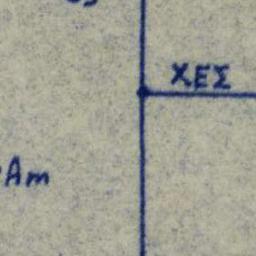 ΧΕΣ
Am